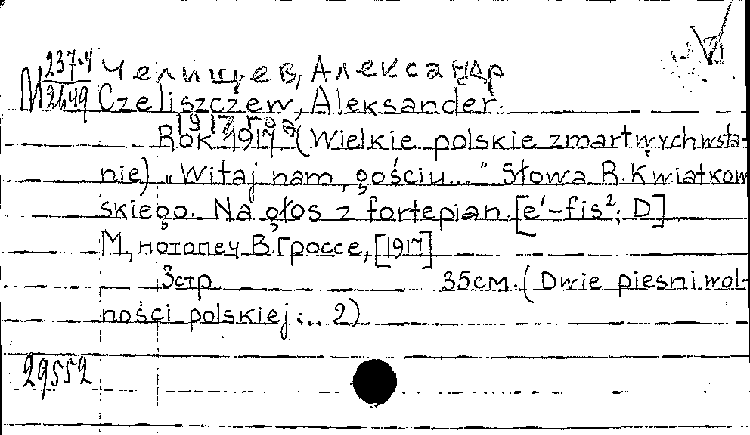 М 237-4
2649
Челищев, Александр
Czeliszczew, Aleksander.
1917 год
Rok 1917 (Wielkie polskie zmartwychwsta-
nie) „Witaj nam, gościu..." Słowa R. Kwiatkow
skiego. Na głos z fortepian. [e¹-fis²; D]
М, нотопеч В. Гроссе, [1917]
3стр. 35см. (Dwie piesni wol-
ności polskiej:.. 2)
29552